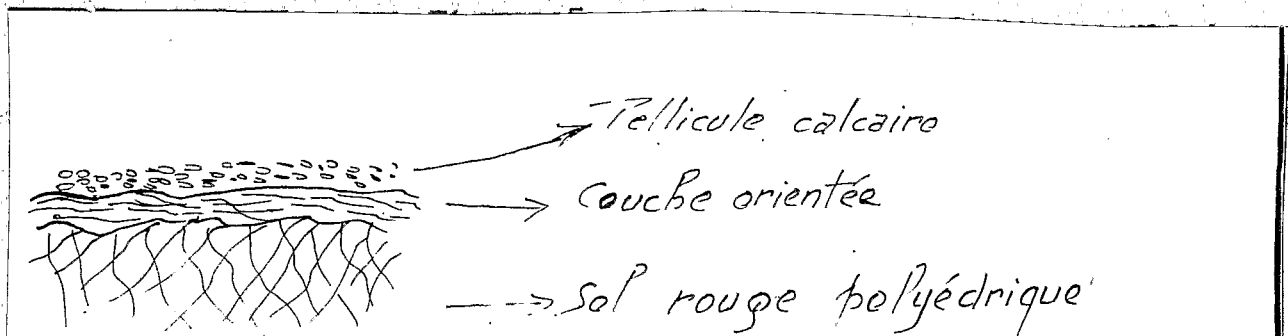 Pellicule calcaire
couche orientée
sol rouge polyédrique